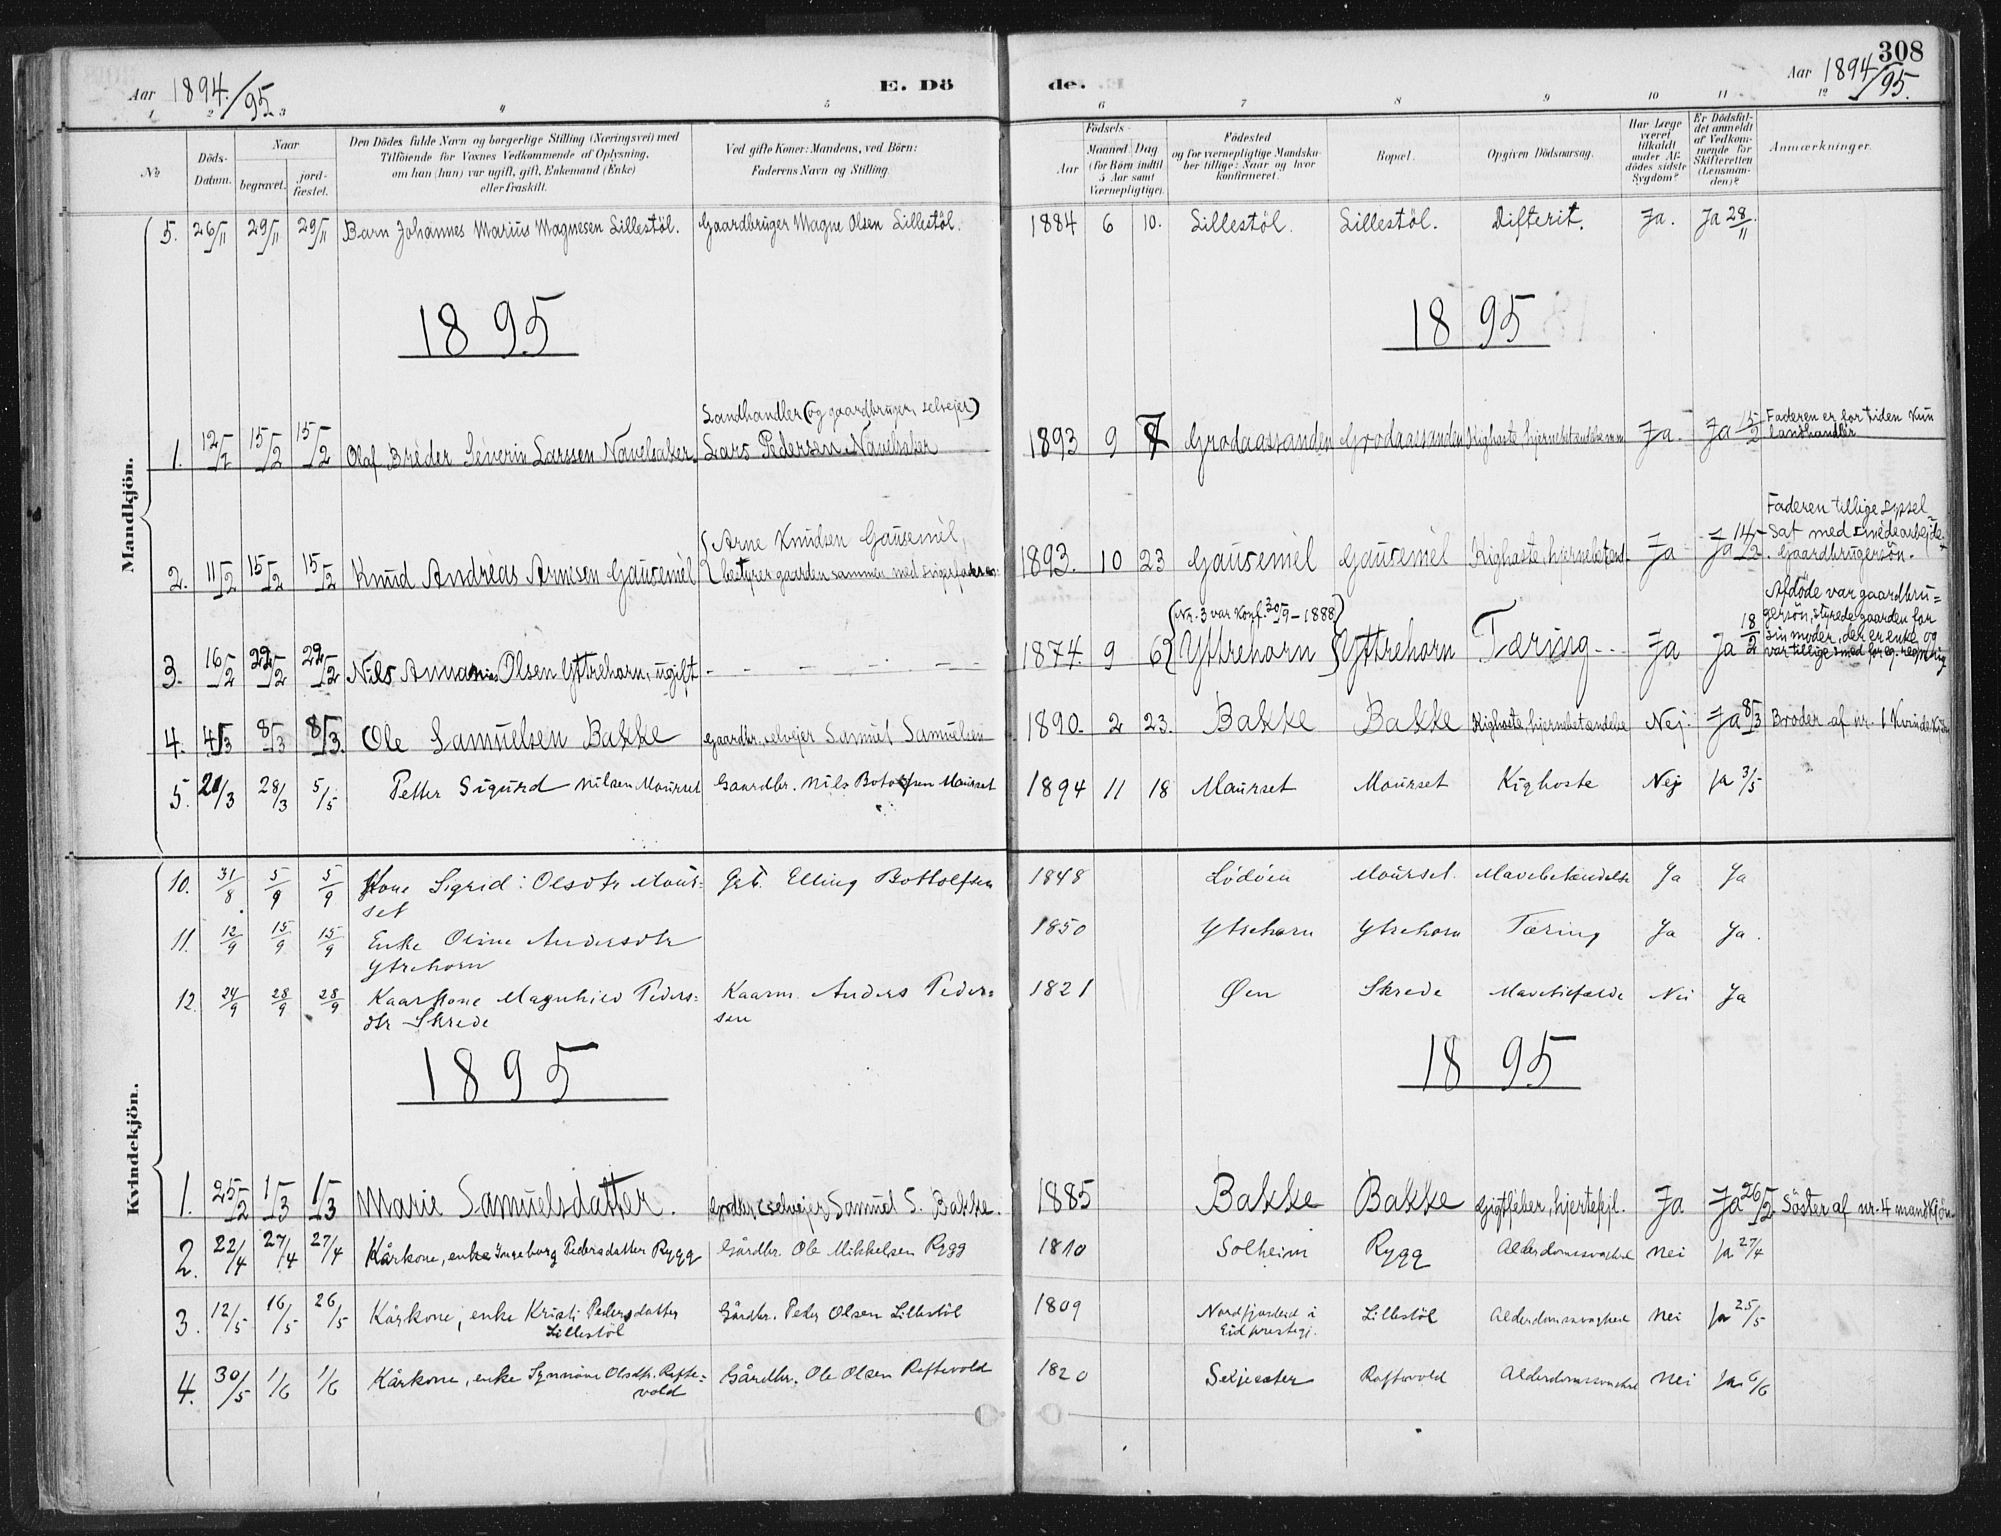 308
Aar 1894/95
E. Dö
de.
Aar 1894/95.
1 2 3 4 5 6 7 8 9 10 11 12
No
Döds-
Datum.
Naar
begravet.
jord-
fæstet.
Den Dödes fulde Navn og borgerlige Stilling (Næringsvei) med
Tilföiende for Voxnes Vedkommende af Oplysning,
om han (hun) var ugift, gift, Enkemand (Enke)
eller fraskilt.
Ved gifte Koner: Mandens, ved Börn:
Faderens Navn og Stilling.
Födsels-
Aar
Maaned Dag
(for Börn indtil
5 Aar samt
Værnepligtige).
Födested
og for værnepligtige Mandsku-
ber tillige: Naar og hvor
konfirmeret.
Bopæl.
Opgiven Dödsaarsag.
Har Læge
været
tilkaldt
under Af-
dödes sidste
Sygdom?
Er Dödsfal-
det anmeldt
af Vedkom-
mende for
Skifteretten
(Lensman-
den)?
Anmærkninger.
Mandkjön.
5. 26/11 29/11 29/11 Barn Johannes Marius Magnesen Lillestöl. Gaardbruger Magne Olsen Lillestöl. 1884 6 10. Lillestöl. Lillestöl. Difterit. Ja. Ja 28/11.
1895
1895
Landhandler (og gaardbruger, selvejer)
1. 12/2 15/2 15/2 Olaf Breder Severin Larssen Navelsaker. Lars Pedersen Navelsaker 1893 9 7 Grodaassanden Grodaassanden Kighoste, Ja. Ja 15/2 Faderen er for tiden kun
landhandler
2. 11/2 15/2 15/2 Knud Andreas Arnesen Gausemel Arne Knudsen Gausemel,
bestyrer gaarden sammen med 1893. 10 23 Gausemel Gausemel Kighoste, hjernebetænd. Ja Ja 14/2 Faderen tillige syssel-
sat med smedearbejde.
Gaardbrugersön.
(Nr. 3 var Konf. 30/9 - 1888)
3. 16/2 22/2 22/2 Nils Ananias Olsen Yttrehorn, ugift - - - - - 1874. 9 6 Yttrehorn Yttrehorn Tæring Ja Ja 18/2 Afdöde var gaardbru=
gersön, styrede gaarden for
sin moder, der er enke og
var tillige
4. 4/3 8/3 8/3. Ole Samuelsen Bakke Gaardbr., selvejer Samuel Samuelsen 1890. 2 23. Bakke Bakke Kighoste, hjernebetændelse Nej. Ja 8/3 Broder af nr. 1 Kvindekjön
5. 21/3 28/3 5/5 Petter Sigurd Nilsen Maurset Gaardbr. Nils Botolfsen Maurset 1894 11 18 Maurset Maurset Kighoste Nej Ja 3/5
Kvindekjön.
10. 31/8 5/9 5/9 Kone Sigrid Olsdtr Maur-
set Elling Bottolfsen 1848 Lödöen Maurset Mavebetændelse Ja Ja
11. 12/9 15/9 15/9 Enke Oline Andersdtr
Ytrehorn 1850 Ytrehorn Ytrehorn Tæring Ja Ja.
12. 24/9 28/9 28/9 Kaarkone Magnhild Peders-
dtr Skrede Kaarm. Anders Peder-
sen 1821 Øen Skrede Nei Ja
1895
1895
1. 25/2 1/3 1/3 Marie Samuelsdatter. Grdbr. (selvejer) Samuel S. Bakke. 1885 Bakke Bakke Gigtfeber, hjertefejl. Ja Ja 26/2 Söster af nr. 4 mandkjön
2. 22/4 27/4 27/4 Kårkone, enke Ingeborg Pedersdatter Rygg Gårdbr. Ole Mikkelsen Rygg 1810 Solheim Rygg Alderdomssvaghed Nei Ja 27/4
3. 12/5 16/5 26/5 Kårkone, enke Kristi Pedersdatter
Lillestöl Gårdbr. Peder Olsen Lillestöl 1809 Nordfjordeid i
Eid prestegj. Lillestöl Alderdomssvaghed Nei Ja 25/5
4. 30/5 1/6 1/6 Kårkone, enke Synnöve Olsdtr. Rafte-
vold Gårdbr. Ole Olsen Raftevold 1820 Seljeseter Raftevold Alderdomssvaghed Nei Ja 6/6